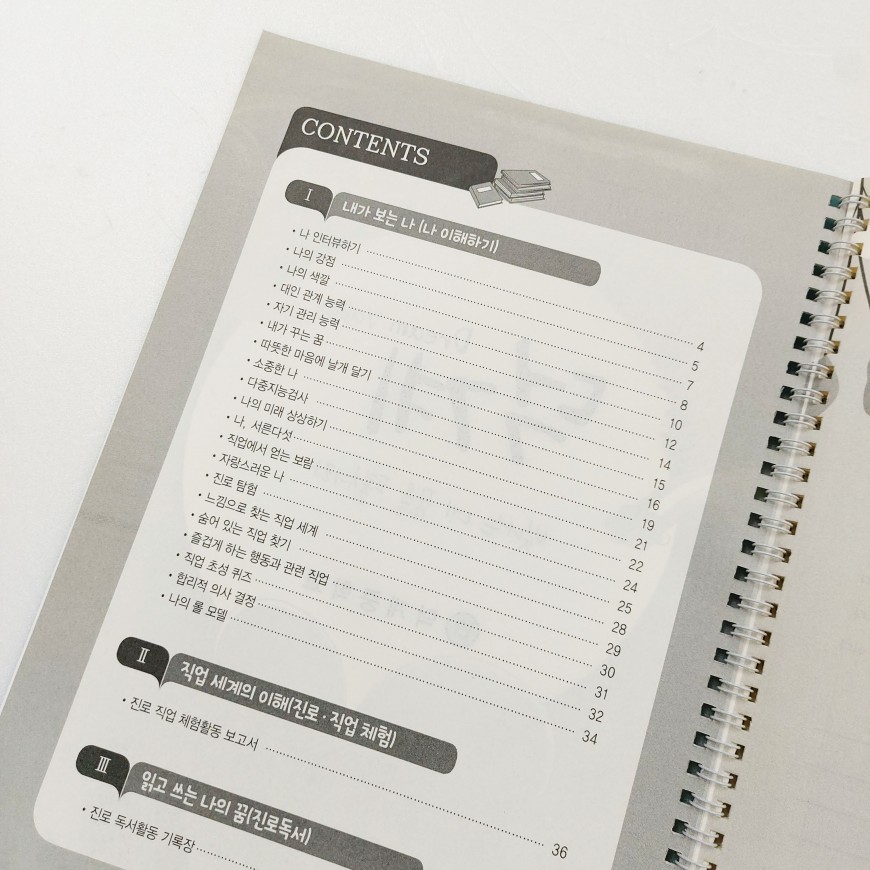 CONTENTS
Ⅰ 내가 보는 나 (나 이해하기)
• 나 인터뷰하기 4
• 나의 강점 5
• 나의 색깔 7
• 대인 관계 능력 8
• 자기 관리 능력 10
• 내가 꾸는 꿈 12
• 따뜻한 마음에 날개 달기 14
• 소중한 나 15
• 다중지능검사 16
• 나의 미래 상상하기 19
• 나, 서른다섯 21
• 직업에서 얻는 보람 22
• 자랑스러운 나 24
• 진로 탐험 25
• 느낌으로 찾는 직업 세계 28
• 숨어 있는 직업 찾기 29
• 즐겁게 하는 행동과 관련 직업 30
• 직업 초성 퀴즈 31
• 합리적 의사 결정 32
• 나의 롤 모델 34
Ⅱ 직업 세계의 이해(진로 · 직업 체험)
• 진로 직업 체험활동 보고서 36
Ⅲ 읽고 쓰는 나의 꿈(진로독서)
• 진로 독서활동 기록장